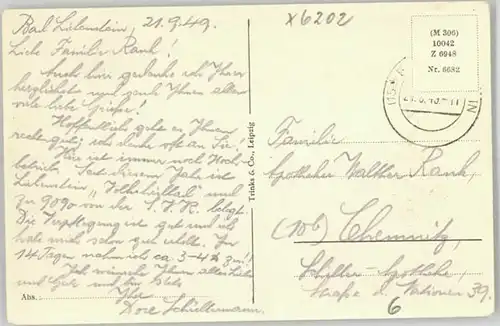 Bad Liebenstein, 21.9.49.
Liebe Familie Rank!
Auch hier gedenke ich Ihrer
herzlichst und sende Ihnen allen
viele liebe Grüsse!
Hoffentlich geht es Ihnen
recht gut; ich denke oft an Sie!
Hier ist immer noch Hoch-
betrieb. Seit diesem Jahr ist
Liebenstein "Volksheilbad" und
zu 90% von der S.V.K. belegt.
Die Verpflegung ist gut und ich
habe mich schon gut erholt. In
14 Tagen nahm ich ca 3-4 zu!
Ich wünsche Ihnen alles Liebe
und Gute und bin stets
Ihre
Abs.
Dore Schüttermann.
Trinks & Co., Leipzig
x6202
(M 306)
10042
Z 6948
Nr. 6682
Familie
Apotheker Walther Rank,
(10b) Chemnitz,
Schiller-Apotheke,
Straße d. Nationen 39.
6